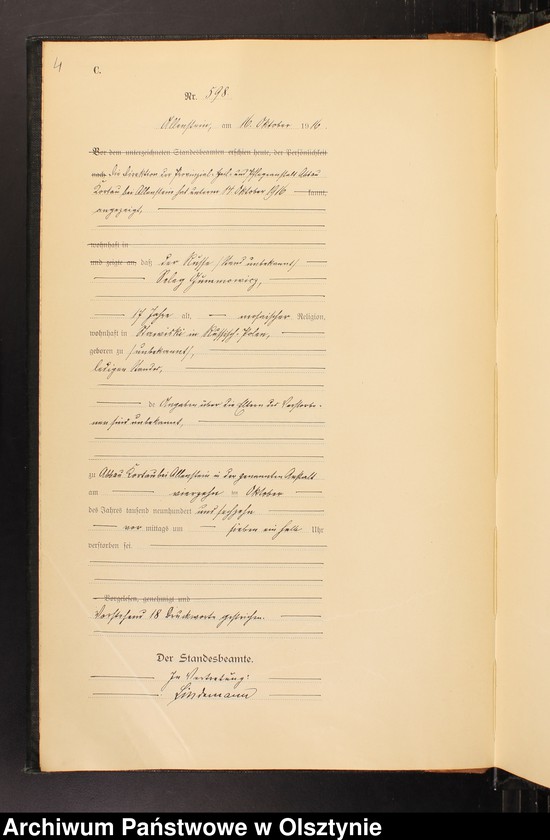 4
C.
Nr. 598
Allenstein, am 16. Oktober 1916.
Vor dem unterzeichneten Standesbeamten erschien heute, der Persönlichkeit
nach die Direktion der Provinzial-Heil- und Pflegeanstalt Abbau
Kortau bei Allenstein hat unterm 14. Oktober 1916 kannt,
angezeigt,
wohnhaft in
und zeigte an, daß der Russe (Stand unbekannt)
Selag Gummowicz,
17 Jahre alt, mosaischer Religion,
wohnhaft in Stawiski in Russisch-Polen,
geboren zu (unbekannt),
ledigen Standes,
die Angaben über die Eltern des Verstorbe-
nen sind unbekannt,
zu Abbau Kortau bei Allenstein in der genannten Anstalt
am vierzehn ten Oktober
des Jahres tausend neunhundert und sechzehn
vor mittags um sieben ein halb Uhr
verstorben sei.
Vorgelesen, genehmigt und
Vorstehend 18 Druckworte gestrichen.
Der Standesbeamte.
In Vertretung:
Lindemann
Archiwum Państwowe w Olsztynie